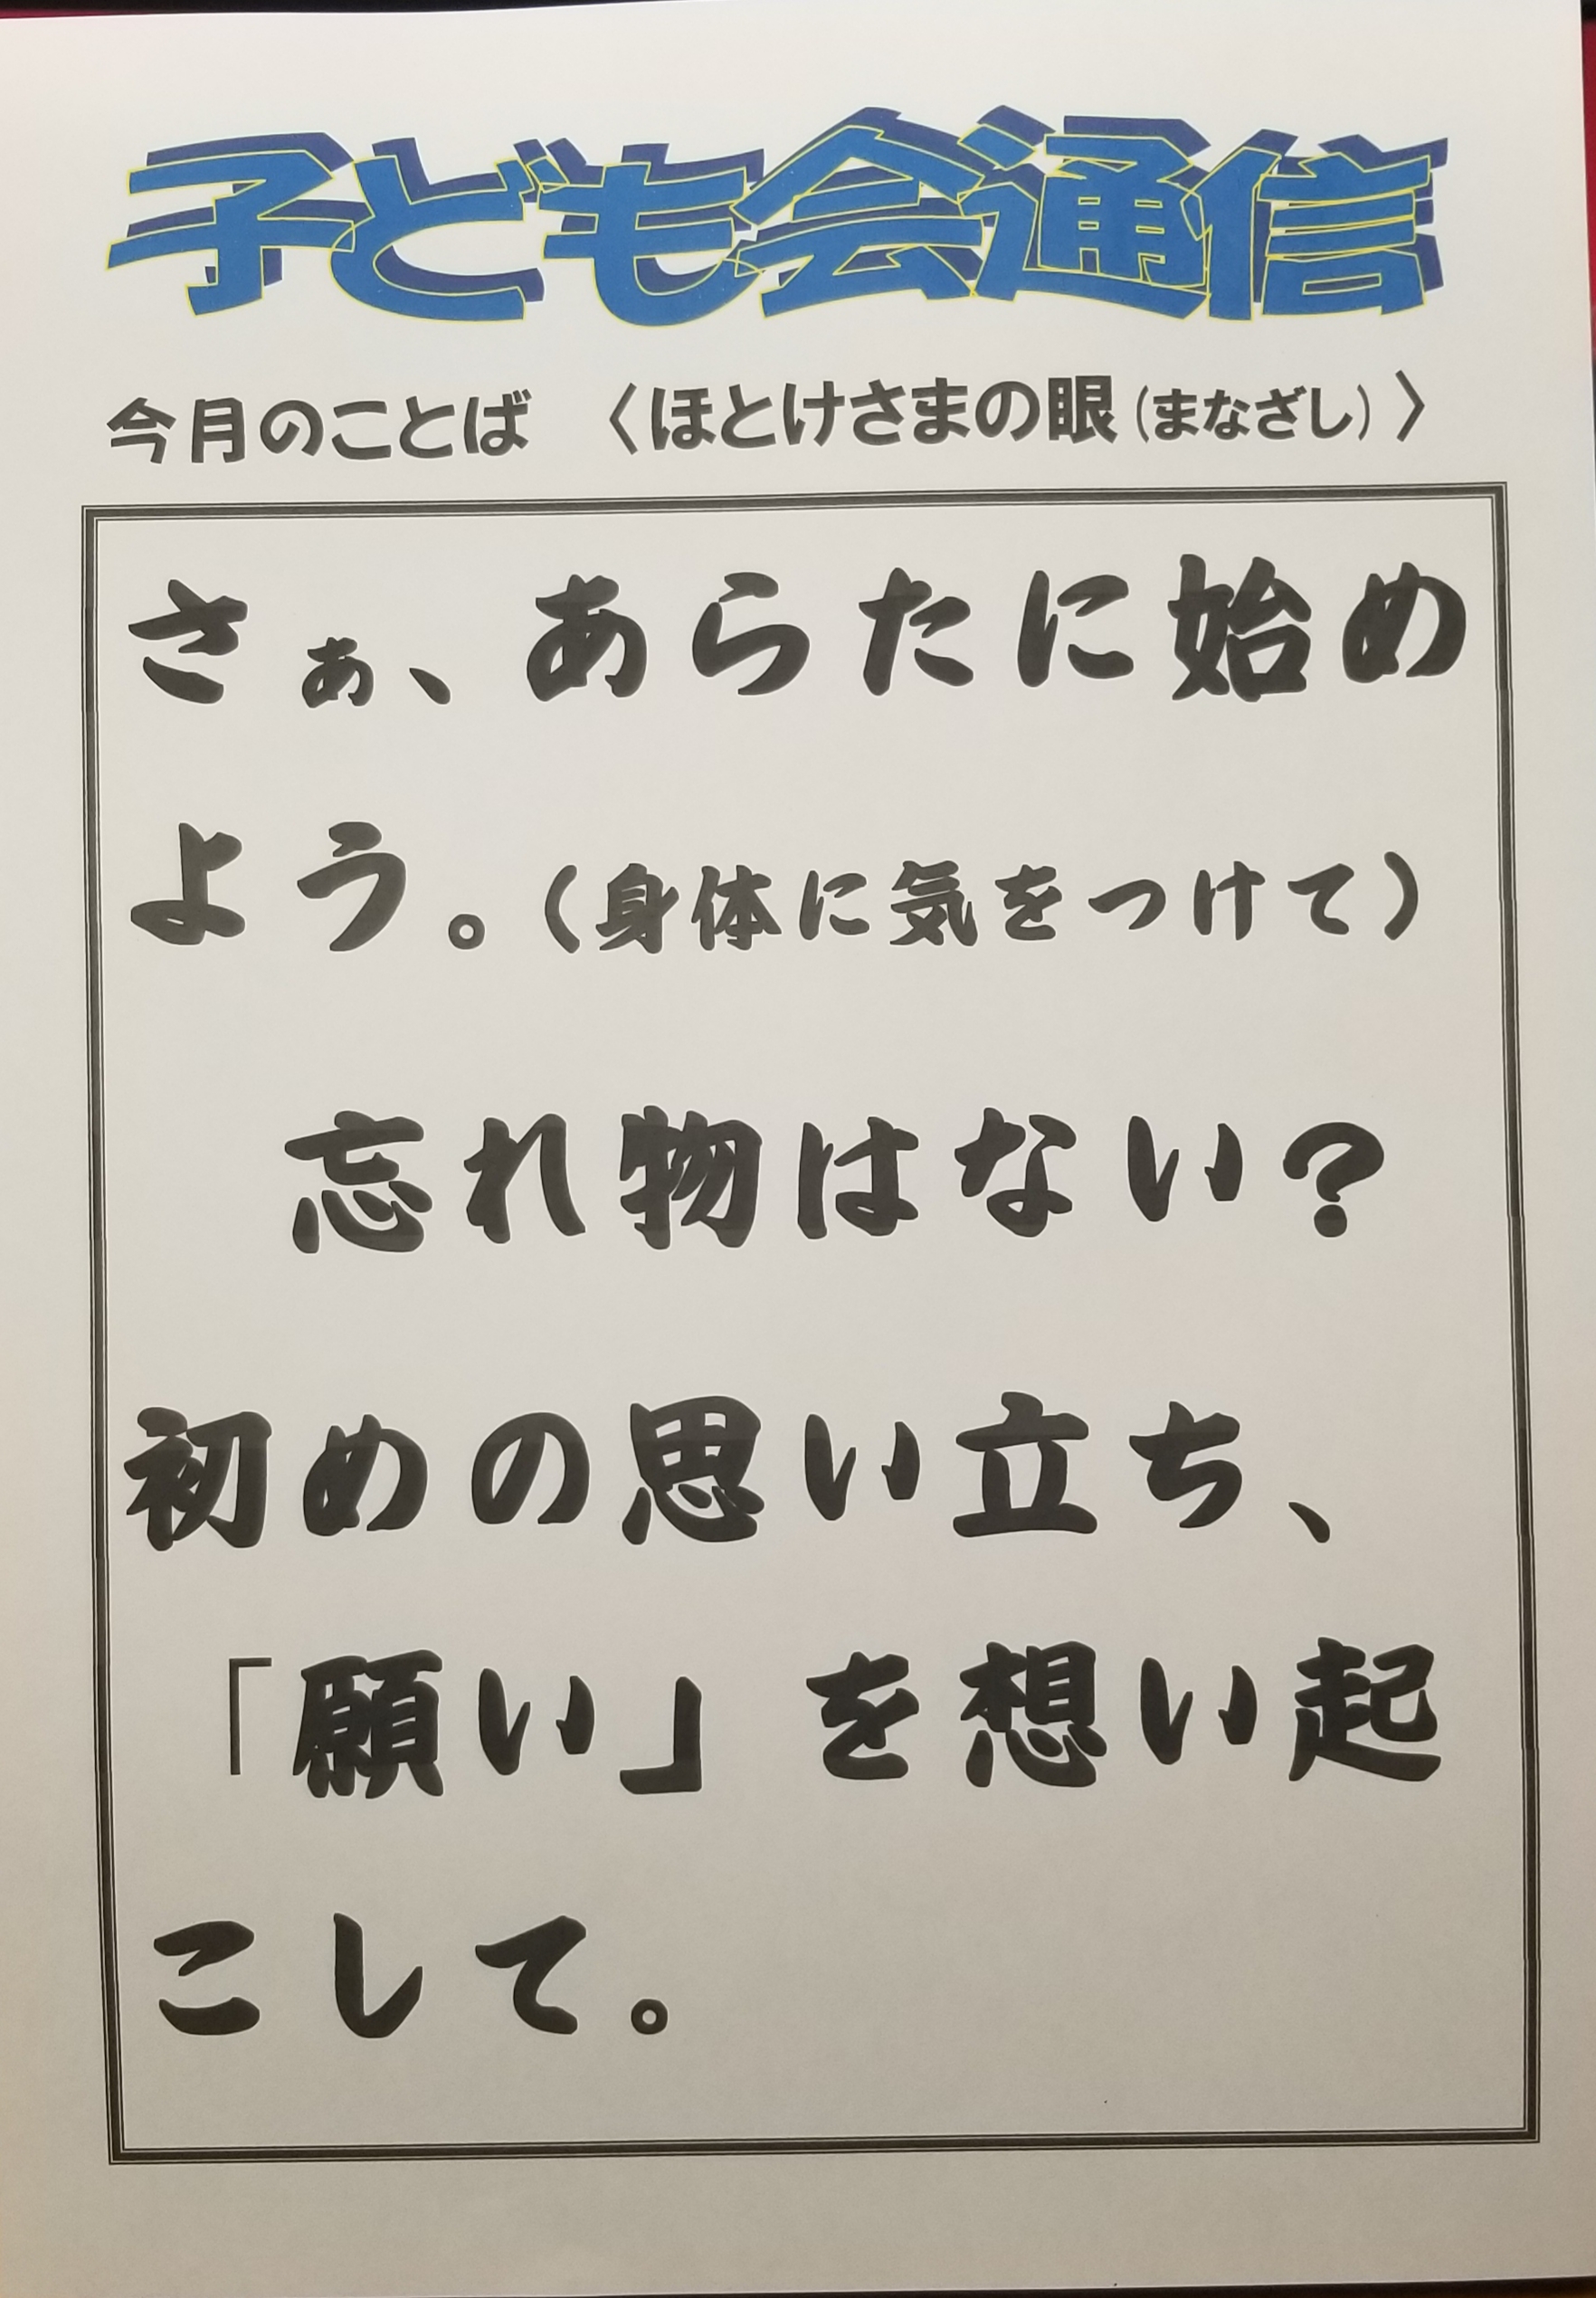 子ども会通信
今月のことば 〈ほとけさまの眼(まなざし)〉
さぁ、あらたに始め
よう。(身体に気をつけて)
忘れ物はない?
初めの思い立ち、
「願い」を想い起
こして。